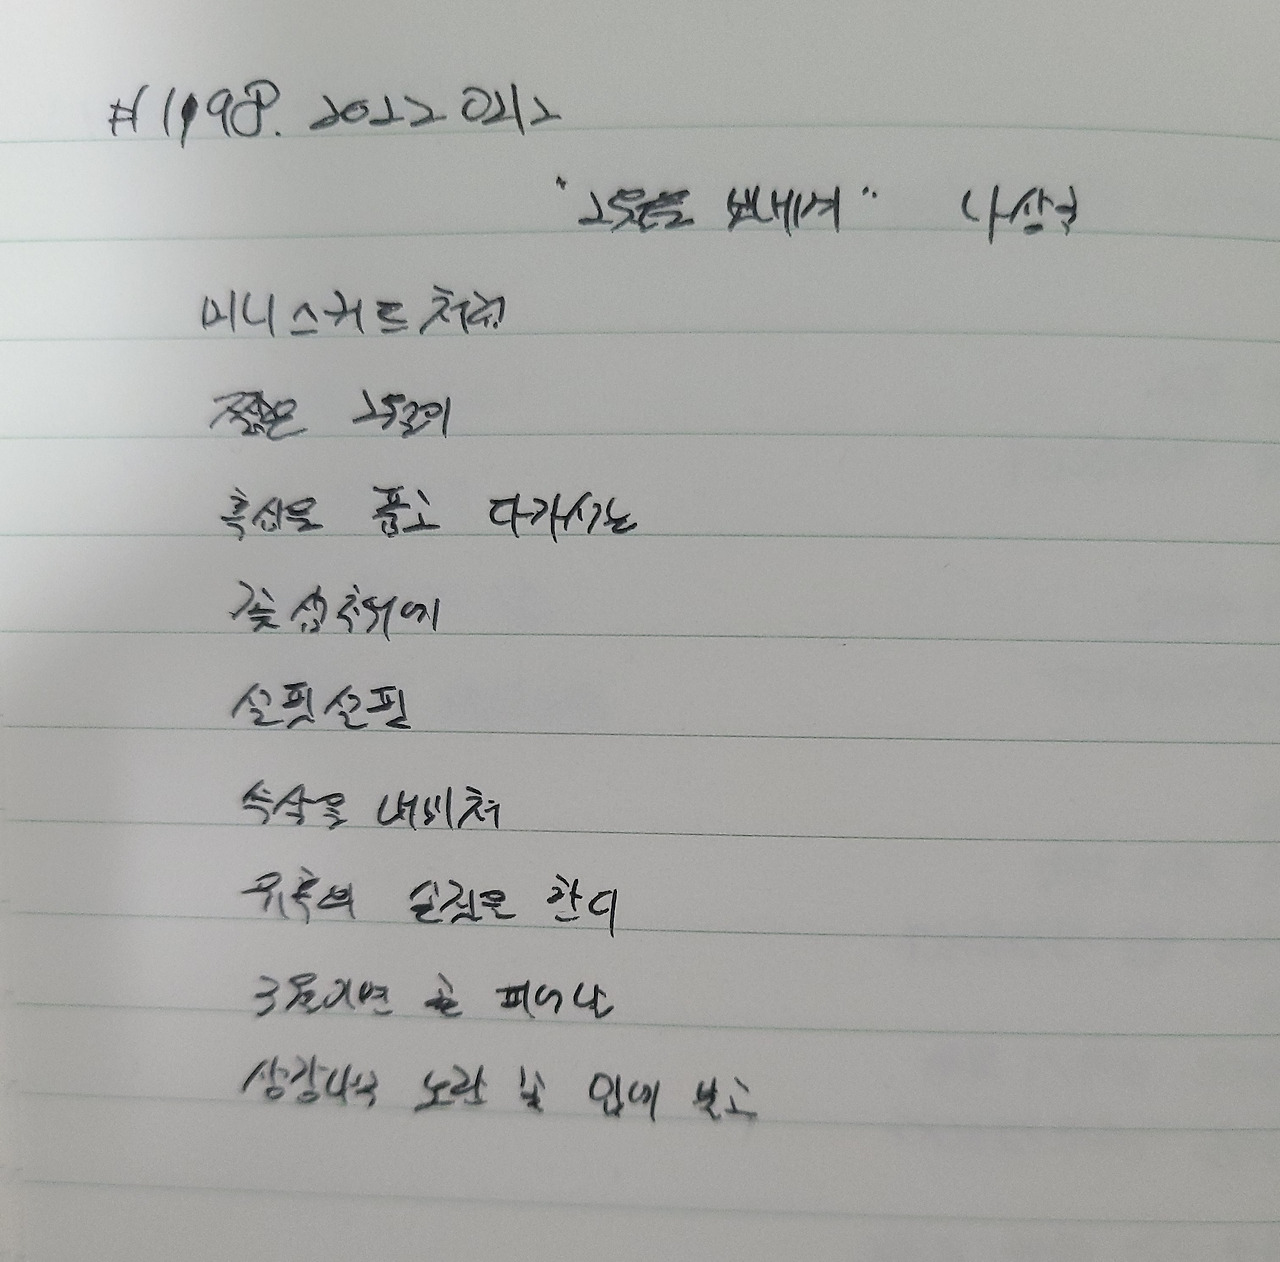 #1198. 2022 0212
"2월을 보내며" 나상국
미니스커트처럼
짧은 2월이
흑심을 품고 다가서는
꽃샘추위에
설핏설핏
속살을 내비쳐
유혹의 손짓을 한다
3월이면 곧 피어날
생강나무 노란 빛 입에 물고